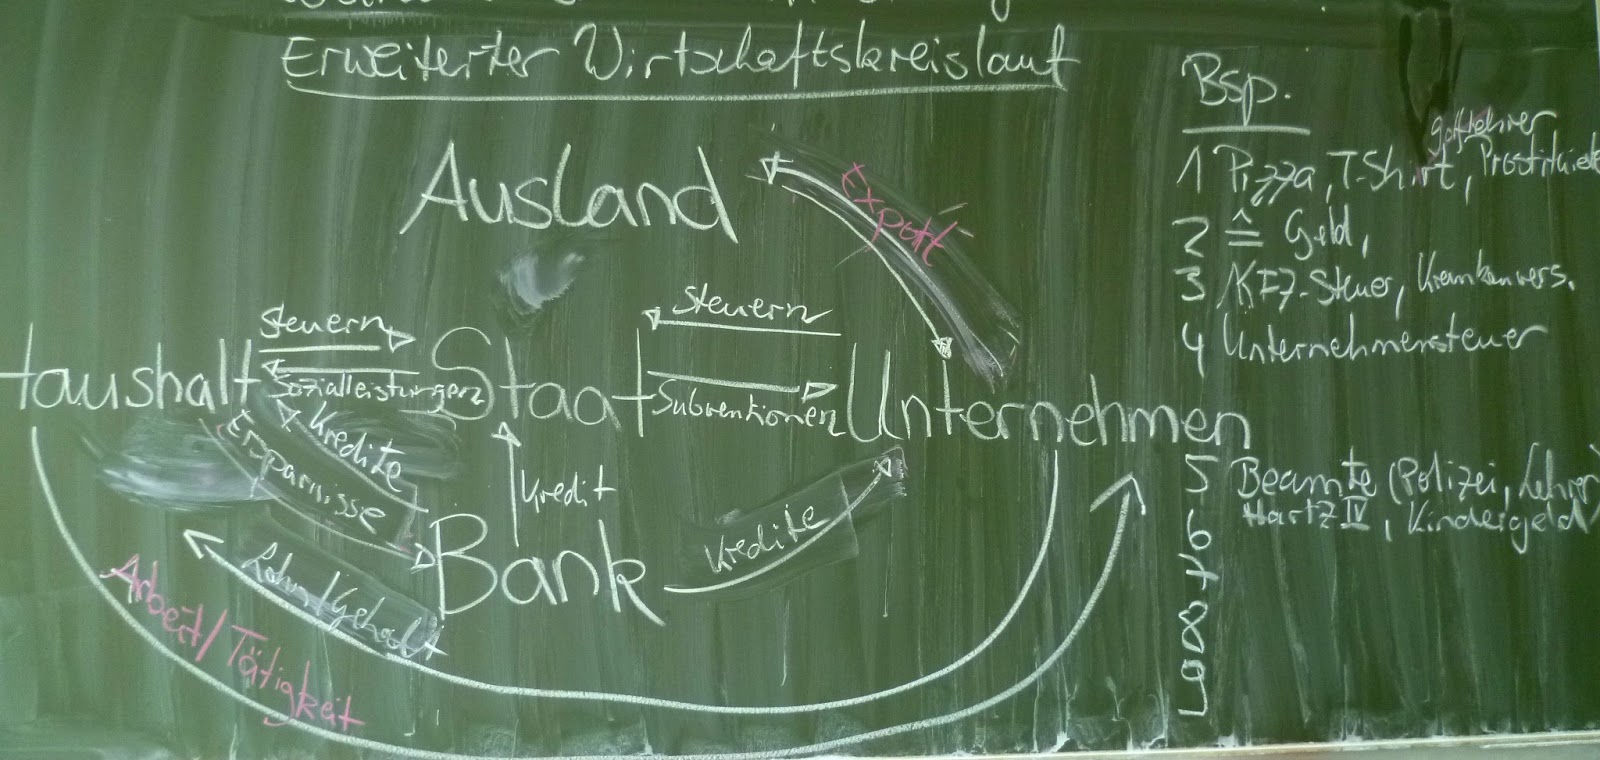 Erweiterter Wirtschaftskreislauf
Ausland
Export
Steuern
Steuern
Haushalt
Sozialleistungen
Staat
Subventionen
Unternehmen
Kredite
Ersparnisse
Kredit
Bank
Kredite
Lohn/Gehalt
Arbeit/Tätigkeit
Bsp.
1 Pizza, T-Shirt,
2 ≙ Geld,
3 KFZ-Steuer, Krankenvers.
4 Unternehmensteuer
5 Beamte (Polizei, Lehrer)
6 Hartz IV, Kindergeld
7
8
9
10